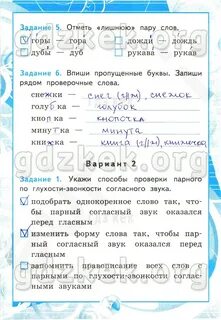 Задание 5. Отметь «лишнюю» пару слов.
горы гора дожди дождь
дубы дуб рукава рукав
Задание 6. Впиши пропущенные буквы. Запиши
рядом проверочные слова.
снежки — снег
голубка — голубок
кнопка — кнопочка
минутка — минута
книжка — книга
gdzkek.org
Вариант 2
Задание 1. Укажи способы проверки парного
по глухости-звонкости согласного звука.
подобрать однокоренное слово так, что-
бы парный согласный звук оказался
перед гласным
изменить форму слова так, чтобы пар-
ный согласный звук оказался перед
гласным
запомнить правописание всех слов с
парными по глухости-звонкости соглас-
ными звуками